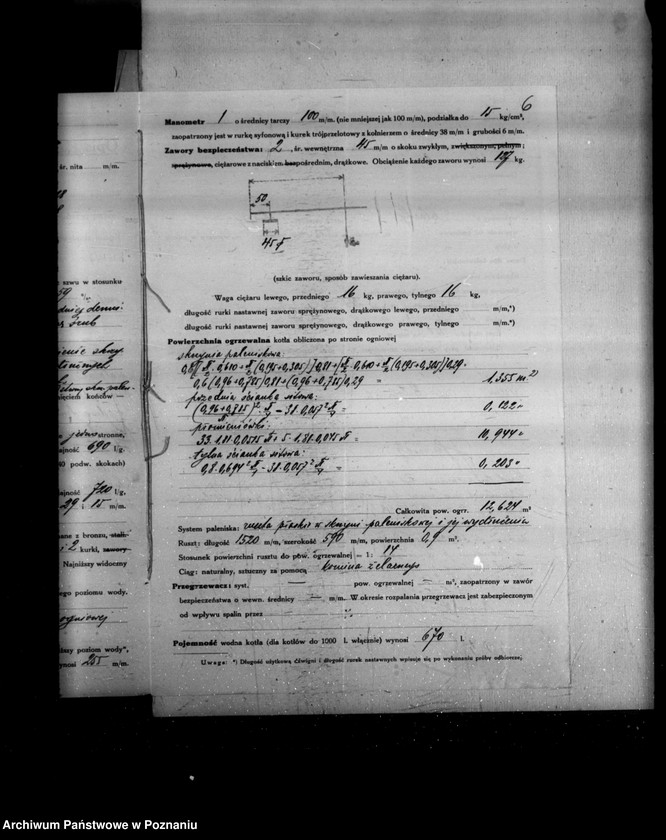 6
Manometr 1 o średnicy tarczy 100 m/m. (nie mniejszej jak 100 m/m), podziałka do 15 kg/cm²,
zaopatrzony jest w rurkę syfonową i kurek trójprzelotowy z kołnierzem o średnicy 38 m/m i grubości 6 m/m.
Zawory bezpieczeństwa: 2 śr. wewnętrzna 45 m/m o skoku zwykłym, zwiększonym, pełnym;
sprężynowe, ciężarowe z naciskiem bezpośrednim, drążkowe. Obciążenie każdego zaworu wynosi 127 kg.
50
45
(szkic zaworu, sposób zawieszania ciężaru).
Waga ciężaru lewego, przedniego 16 kg, prawego, tylnego 16 kg,
długość rurki nastawnej zaworu sprężynowego, drążkowego lewego, przedniego m/m,*)
długość rurki nastawnej zaworu sprężynowego, drążkowego prawego, tylnego m/m.*)
Powierzchnia ogrzewalna kotła obliczona po stronie ogniowej
skrzynia paleniskowa:
1.355 m²
przednia ścianka sitowa:
0,122 "
płomieniówki:
10,944 "
tylna ścianka sitowa:
0,203 "
Całkowita pow. ogrz. 12,624 m²
System paleniska: ruszta płaskie w skrzyni paleniskowej i jej wydłużeniu
Ruszt: długość 1520 m/m, szerokość 590 m/m, powierzchnia 0,9 m².
Stosunek powierzchni rusztu do pow. ogrzewalnej = 1: 14
Ciąg: naturalny, sztuczny za pomocą komina żelaznego
Przegrzewacz: syst. — pow. ogrzewalnej — m², zaopatrzony w zawór
bezpieczeństwa o wewn. średnicy — m/m. W okresie rozpalania przegrzewacz jest zabezpieczonym
od wpływu spalin przez
Pojemność wodna kotła (dla kotłów do 1000 l. włącznie) wynosi 670 l.
Uwaga: *) Długość użytkową dźwigni i długość rurek nastawnych wpisuje się po wykonaniu próby odbiorcze,
śr. nita m/m.
szwu w stosunku
59
jednostronne,
ajność 690 l/g,
podw. skokach)
ajność 720 l/g,
29 i 15 m/m.
ane z bronzu, stali
i 2 kurki, zawory
Najniższy widoczny
ego poziomu wody.
ogniowej
ższy poziom wody",
ynosi 255 m/m.
Archiwum Państwowe w Poznaniu